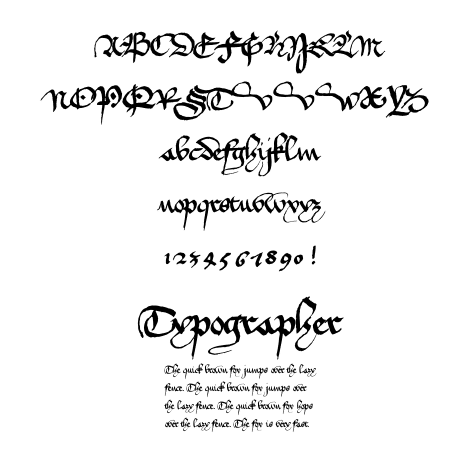 ABCDEFGHIJKLM
NOPQRSTUVWXYZ
abcdefghijklm
nopqrstuvwxyz
1234567890!
Typographer
The quick brown fox jumps over the lazy
fence. The quick brown fox jumps over
the lazy fence. The quick brown fox hops
over the lazy fence. The fox is very fast.